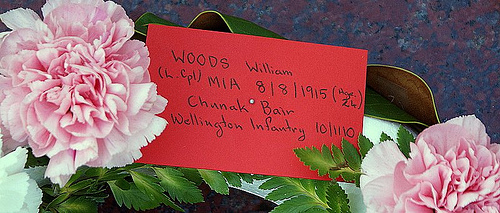 WOODS William
(L. Cpl) MIA 8/8/1915 (Age 26)
Chunak Bair
Wellington Infantry 10/1110